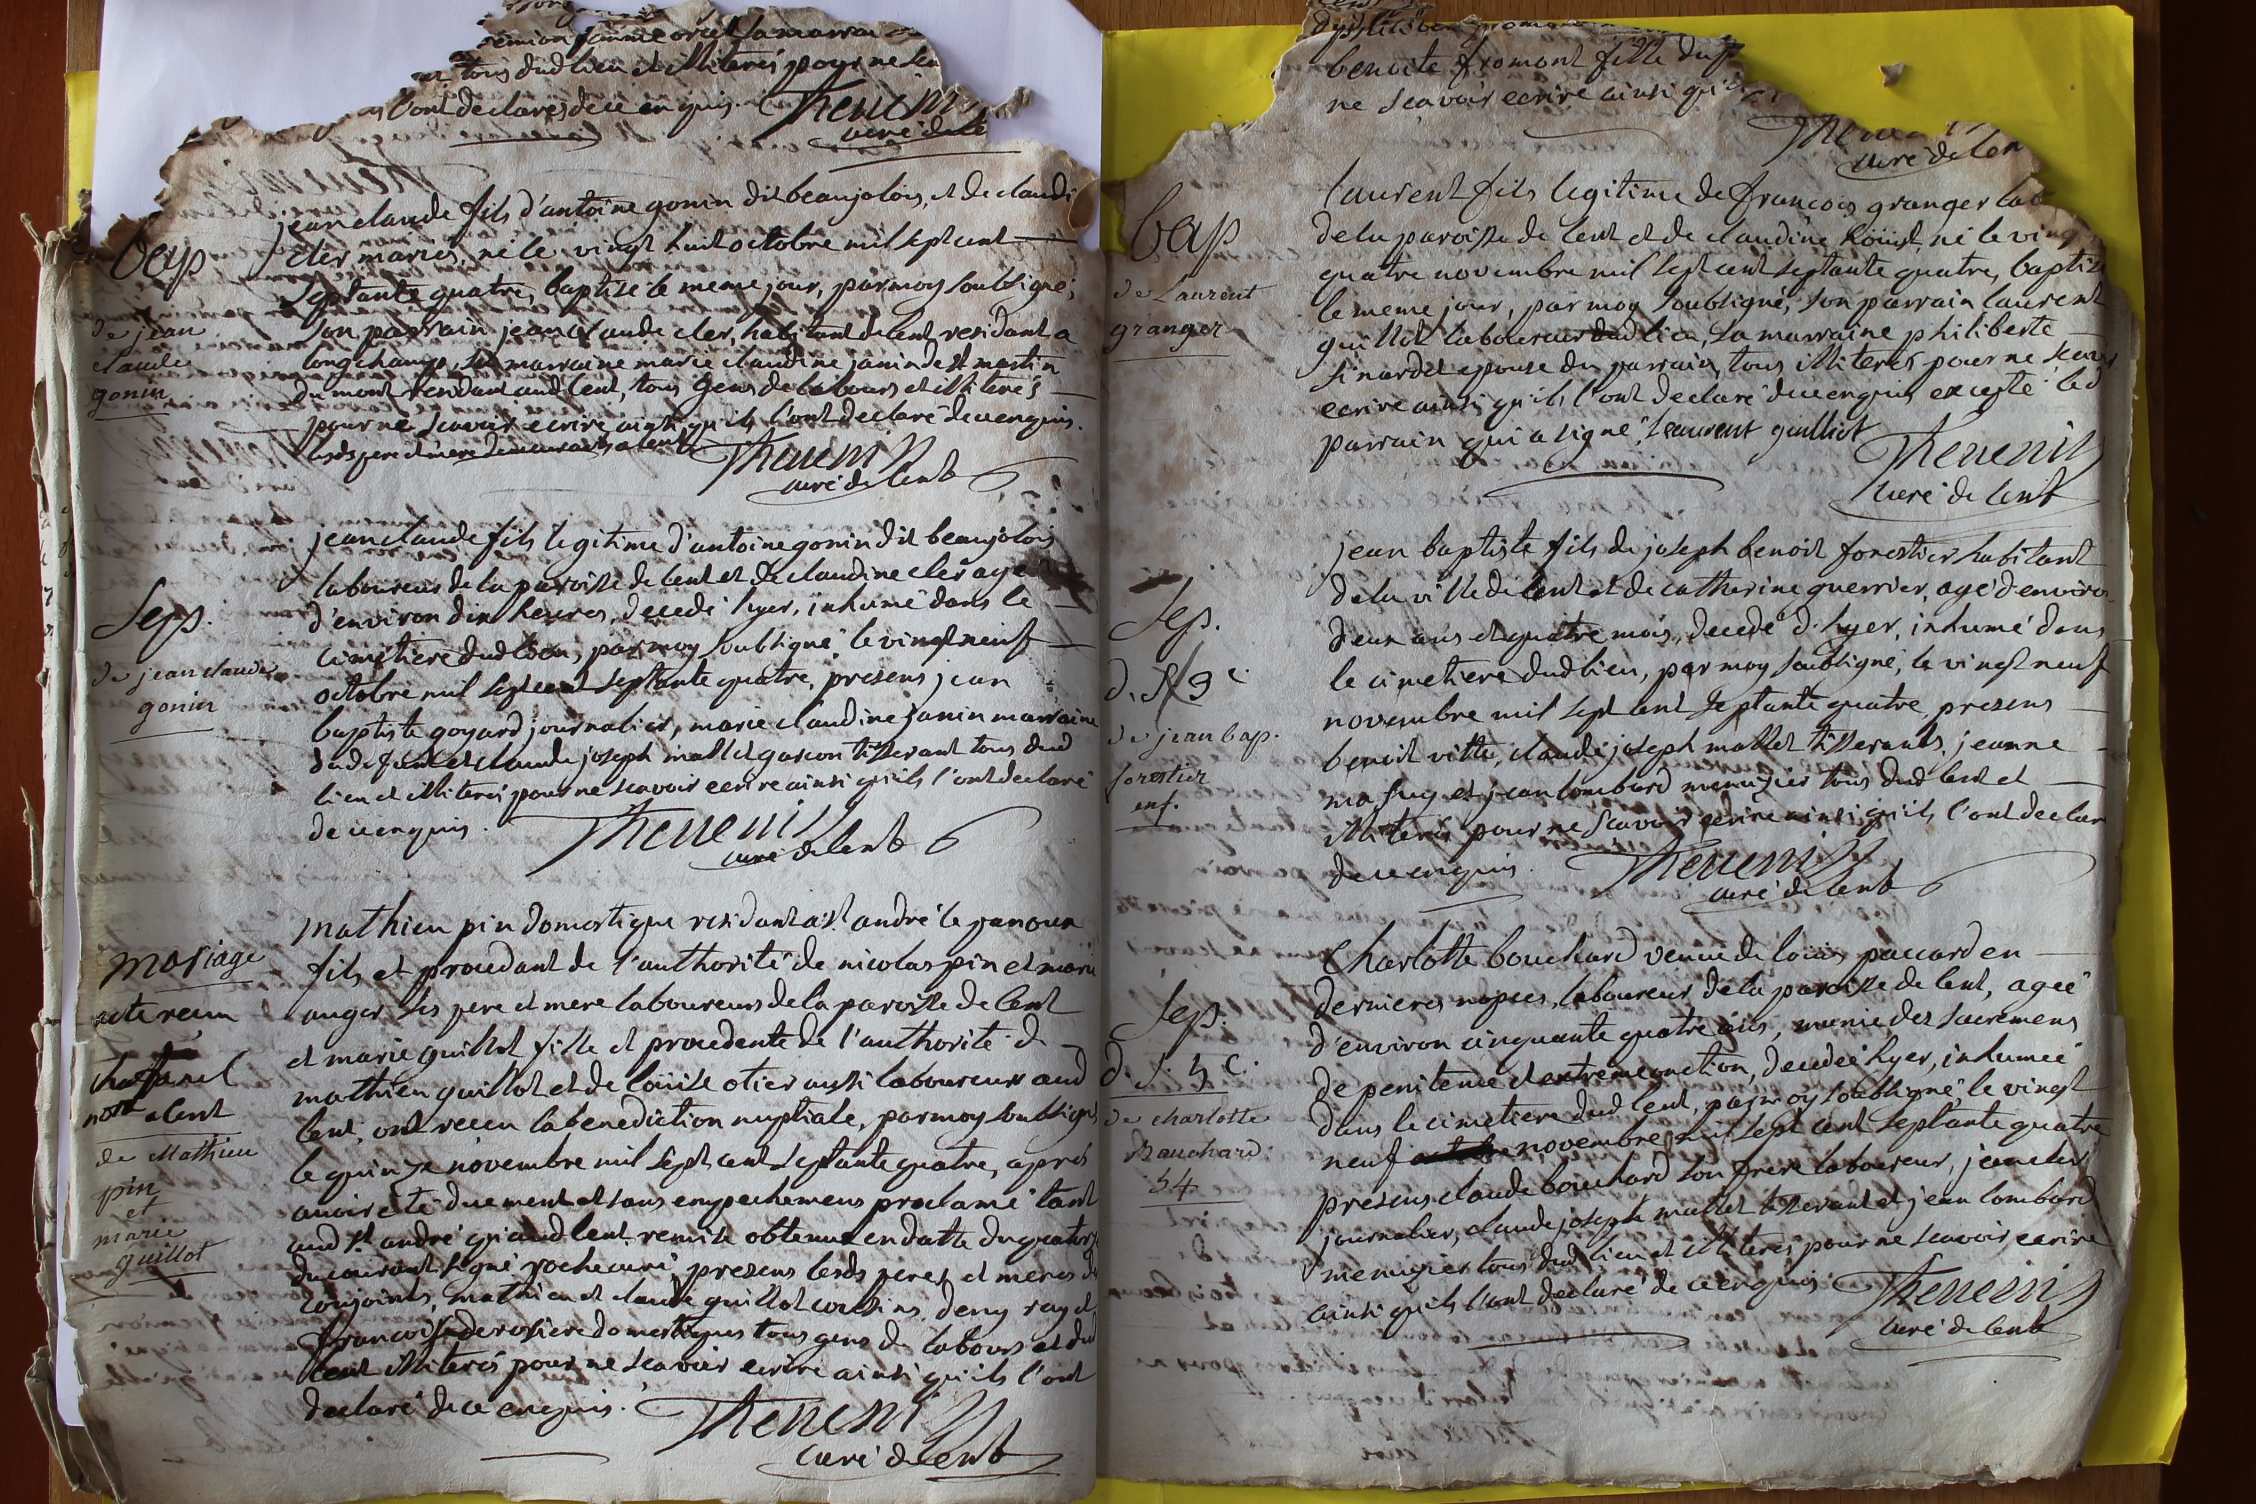 femme
tous dud lieu et illiterés pour ne
l'ont declarés de ce enquis. Thevenin
curé de
bap
de jean
claude
gonin
jean claude fils d'antoine gonin dit beaujolois, et de claudi
cler mariés, né le vingt huit octobre mil sept cent
septante quatre, baptisé le meme jour, par moy soubsigné,
son parrain jean claude cler, habitant de lent, residant a
longchamp, sa marraine marie claudine janin de st martin
du mont residant aud lent, tous gens de labours et illiterés
pour ne scavoir ecrire ainsi qu'ils l'ont declaré de ce enquis.
lesds pere et mere demeurants a lent Thevenin
curé de lent
Sep.
de jean claude
gonin
jean claude fils legitime d'antoine gonin dit beaujolois
laboureur de la paroisse de lent et de claudine cler agé
d'environ dix heures, decedé hyer, inhumé dans le
cimetiere dud lieu, par moy soubsigné, le vingt neuf
octobre mil sept cent septante quatre, presens jean
baptiste goyard journalier, marie claudine janin marraine
dud defunt et claude joseph mallet garcon tisserant tous dud
lieu et illiterés pour ne scavoir ecrire ainsi qu'ils l'ont declaré
de ce enquis. Thevenin
curé de lent
mariage
acte receu
chatanel
nore a lent
de Mathieu
pin
et
marie
guillot
mathieu pin domestique residant a st andré le panoux
fils et procedant de l'authorité de nicolas pin et marie
auger ses pere et mere laboureurs de la paroisse de lent
et marie guillot fille et procedente de l'authorité de
mathieu guillot et de loüise otier aussi laboureurs aud
lent, ont receu la benediction nuptiale, par moy soubsigné
le quinze novembre mil sept cent septante quatre, apres
avoir eté duement et sans empechemens proclamé tant
aud st andré qu'aud lent. remise obtenue en datte du quatorze
du courant signé roche curé, presens lesds peres et meres des
conjoints, mathieu et claude guillot cousins, deny rayet,
francoise derosiere domestiques tous gens de labours et dud
lent illiterés pour ne scavoir ecrire ainsi qu'ils l'ont
declaré de ce enquis. Thevenin
curé de lent
benoite fromont fille du
ne scavoir ecrire ainsi qu'
curé de len
bap
de Laurent
granger
laurent fils legitime de francois granger lab
de la paroisse de lent et de claudine né le ving
quatre novembre mil sept cent septante quatre, baptisé
le meme jour, par moy soubsigné, son parrain laurent
guillot laboureur dud lieu, sa marraine philiberte
sinardet epouse du parrain, tous illiterés pour ne scavoir
ecrire ainsi qu'ils l'ont declaré de ce enquis excepté led
parrain qui a signé. Laurent guilliot
Thevenin
curé de lent
Sep.
de jean bap.
forestier
enf.
jean baptiste fils de joseph benoit forestier habitant
de la ville de lent et de catherine guerrier, agé d'environ
deux ans et quatre mois, decedé d'hyer, inhumé dans
le cimetiere dud lieu, par moy soubsigné, le vingt neuf
novembre mil sept cent septante quatre, presens
benoit vitte, claude joseph mallet tisserants, jeanne
mafuy et jean lombard menuzier tous dud lent et
illiterés pour ne scavoir ecrire ainsi qu'ils l'ont declaré
de ce enquis. Thevenin
curé de lent
Sep.
d. s. 5 c.
de charlotte
Bauchard
54
Charlotte bouchard veuve de loüis paccard en
dernieres nopces, laboureur de la paroisse de lent, agée
d'environ cinquante quatre ans, munie des sacremens
de penitence et extremeonction, decedée hyer, inhumée
dans le cimetiere dud lent, par moy soubsigné, le vingt
neuf novembre mil sept cent septante quatre
presens claude bouchard son frere laboureur, jean cler
journalier, claude joseph mallet tisserant et jean lombard
menuzier tous dud lieu et illiterés pour ne scavoir ecrire
ainsi qu'ils l'ont declaré de ce enquis Thevenin
curé de lent